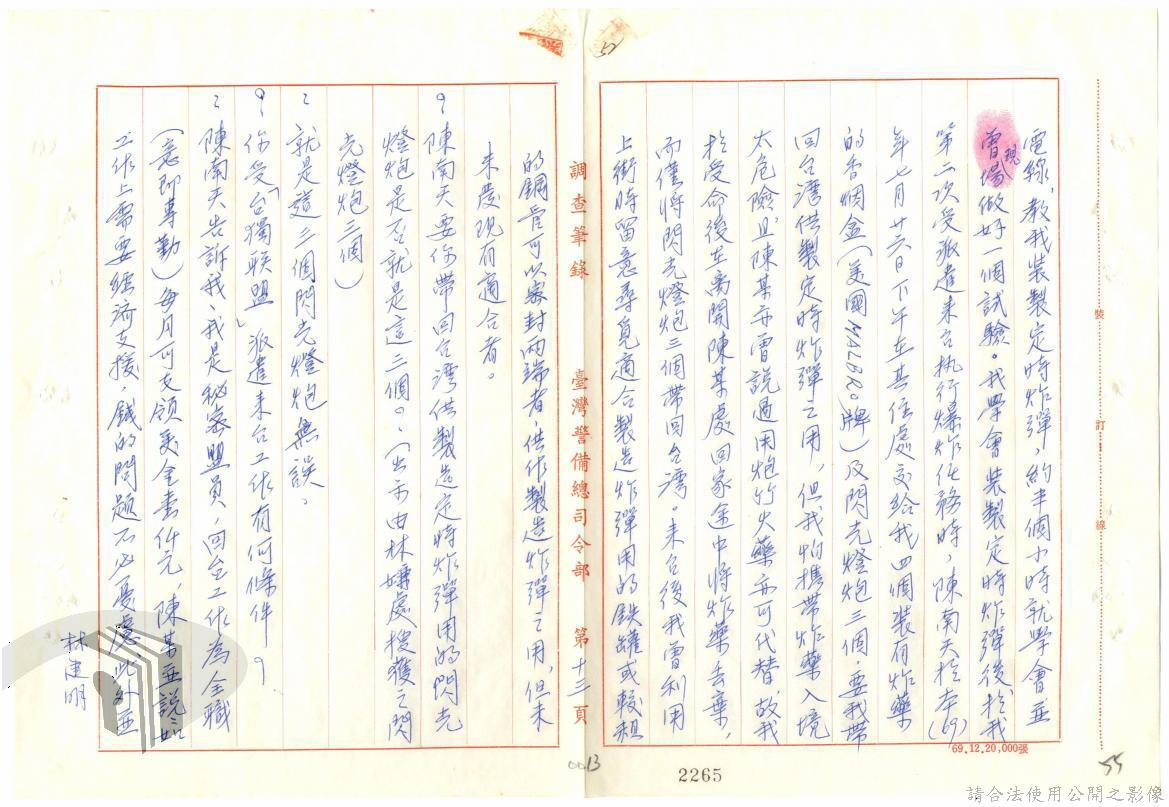 電線，教我裝製定時炸彈，約半個小時就學會並
曾現場做好一個試驗。我學會裝製定時炸彈後，於我
第二次受派遣來台執行爆炸任務時，陳南天於本(69)
年七月廿六日下午在其住處交給我四個裝有炸藥
的香烟盒(美國MALBRO牌)及閃光燈炮三個，要我帶
回台灣供製定時炸彈之用，但我怕攜帶炸藥入境
太危險，且陳某亦曾說過用炮竹火藥亦可代替，故我
於受命後在離開陳某處回家途中將炸藥丟棄，
而僅將閃光燈炮三個帶回台灣。來台後我曾利用
上街時留意尋覓適合製造炸彈用的鉄罐或較粗
調查筆錄 臺灣警備總司令部 第十三頁
的鋼管可以密封兩端者，供作製造炸彈之用，但未
未發現有適合者。
？陳南天要你帶回台灣供製造定時炸彈用的閃光
燈炮是否就是這三個。（出示由林 處搜獲之閃
光燈炮三個）
：就是這三個閃光燈炮無誤。
？你受「台獨联盟」派遣來台工作有何條件？
：陳南天告訴我、我是秘密盟員，回台工作為全職
(意即專勤)每月可支領美金壹仟元，陳某並說：如
工作上需要經濟支援，錢的問題不必憂慮，此外並
林建明
裝 訂 線
69.12.20,000張
52
55
0013
2265
請合法使用公開之影像